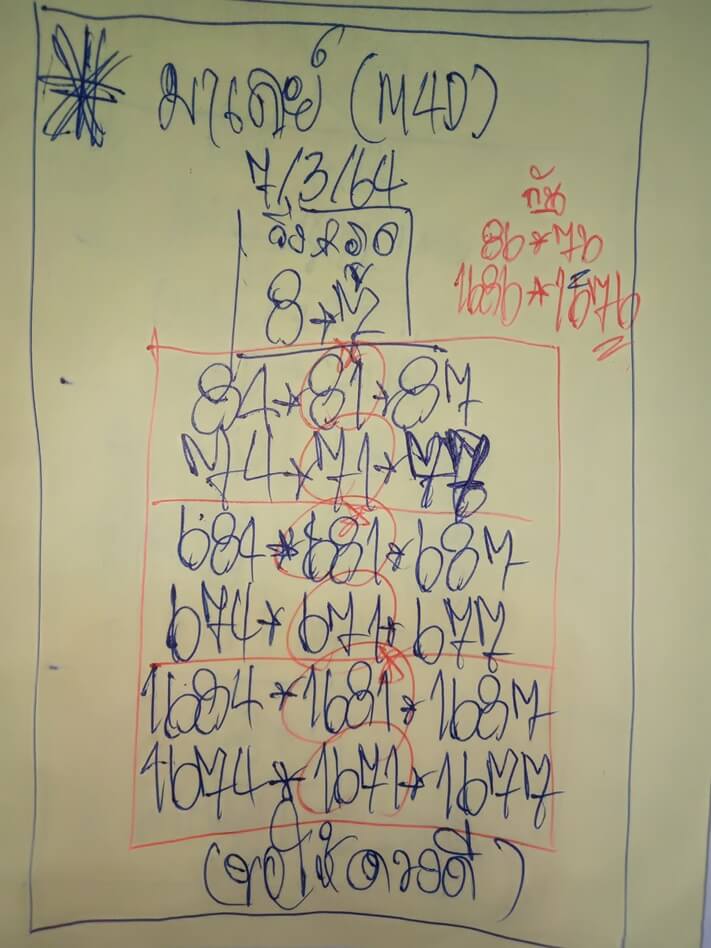 มาเลย์ (M4D)
7/3/64
วิ่งหลัก
8*7
กัน
86*76
1686*1676
84*81*87
74*71*77
684*681*687
674*671*677
1684*1681*1687
1674*1671*1677
(ขอให้ดวงดี)